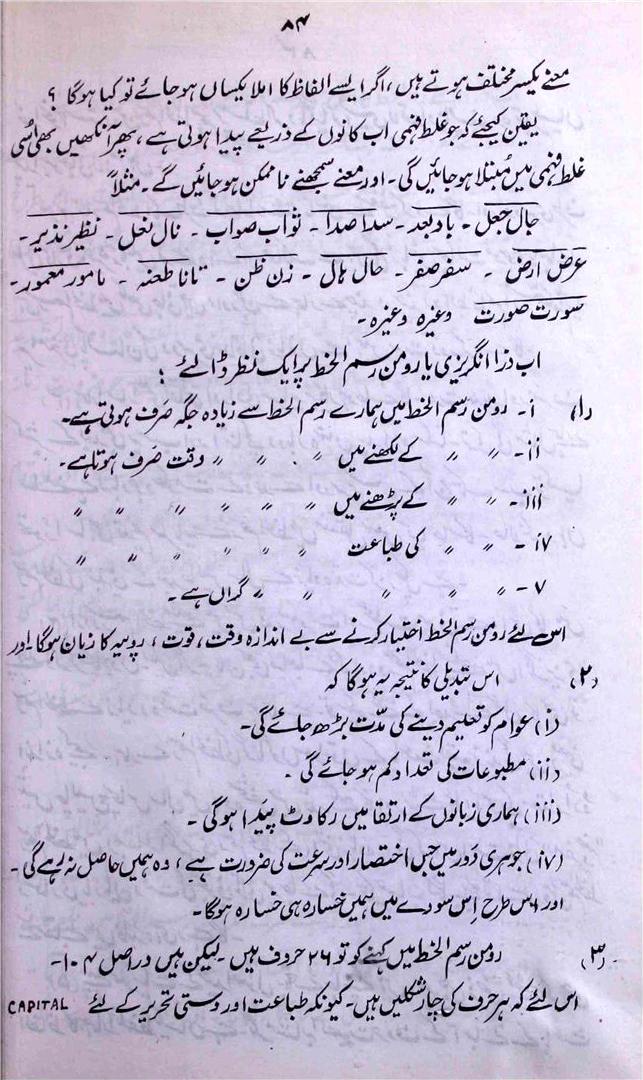 ۸۴
معنے یکسر مختلف ہوتے ہیں، اگر ایسے الفاظ کا املا یکساں ہو جائے تو کیا ہوگا ؟
یقین کیجئے کہ جو غلط فہمی اب کانوں کے ذریعے پیدا ہوتی ہے، پھر آنکھیں بھی اُسی
غلط فہمی میں مُبتلا ہو جائیں گی۔ اور معنے سمجھنے ناممکن ہو جائیں گے۔ مثلاً
جال جعل ۔ باد بعد ۔ سدا صدا ۔ ثواب صواب ۔ نال نعل ۔ نظیر نذیر ۔
عرض ارض ۔ سفر صفر ۔ حال ہال ۔ زن ظن ۔ تانا طعنہ ۔ مامور معمور ۔
سورت صورت وغیرہ وغیرہ ۔
اب ذرا انگریزی یا رومن رسم الخط پر ایک نظر ڈالئے ؛
(۱) i۔ رومن رسم الخط میں ہمارے رسم الخط سے زیادہ جگہ صَرف ہوتی ہے۔
ii۔ 〃 〃 کے لکھنے میں 〃 〃 〃 〃 وقت صَرف ہوتا ہے۔
iii۔ 〃 〃 کے پڑھنے میں 〃 〃 〃 〃 〃 〃 〃
iv ۔ 〃 〃 کی طباعت 〃 〃 〃 〃 〃 〃 〃
v ۔ 〃 〃 〃 〃 〃 〃 گراں ہے ۔
اس لئے رومن رسم الخط اختیار کرنے سے بے اندازہ وقت، قوت، روپیہ کا زیان ہوگا اور
(۲) اس تبدیلی کا نتیجہ یہ ہوگا کہ
(i) عوام کو تعلیم دینے کی مدّت بڑھ جائے گی۔
(ii) مطبوعات کی تعداد کم ہو جائے گی ۔
(iii) ہماری زبانوں کے ارتقا میں رکاوٹ پیدا ہوگی ۔
(iv) جوہری دَور میں جس اختصار اور سرعت کی ضرورت ہے، وہ ہمیں حاصل نہ رہے گی ۔
اور اِس طرح اِس سودے میں ہمیں خسارہ ہی خسارہ ہوگا۔
(۳) رومن رسم الخط میں کہنے کو تو ۲۶ حروف ہیں ۔ لیکن ہیں دراصل ۱۰۴۔
اس لئے کہ ہر حرف کی چار شکلیں ہیں۔ کیونکہ طباعت اور دستی تحریر کے لئے CAPITAL